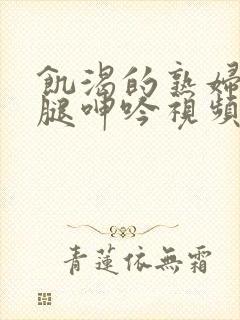 飢渴的熟婦
腿呻吟視頻
青蓮依無霜